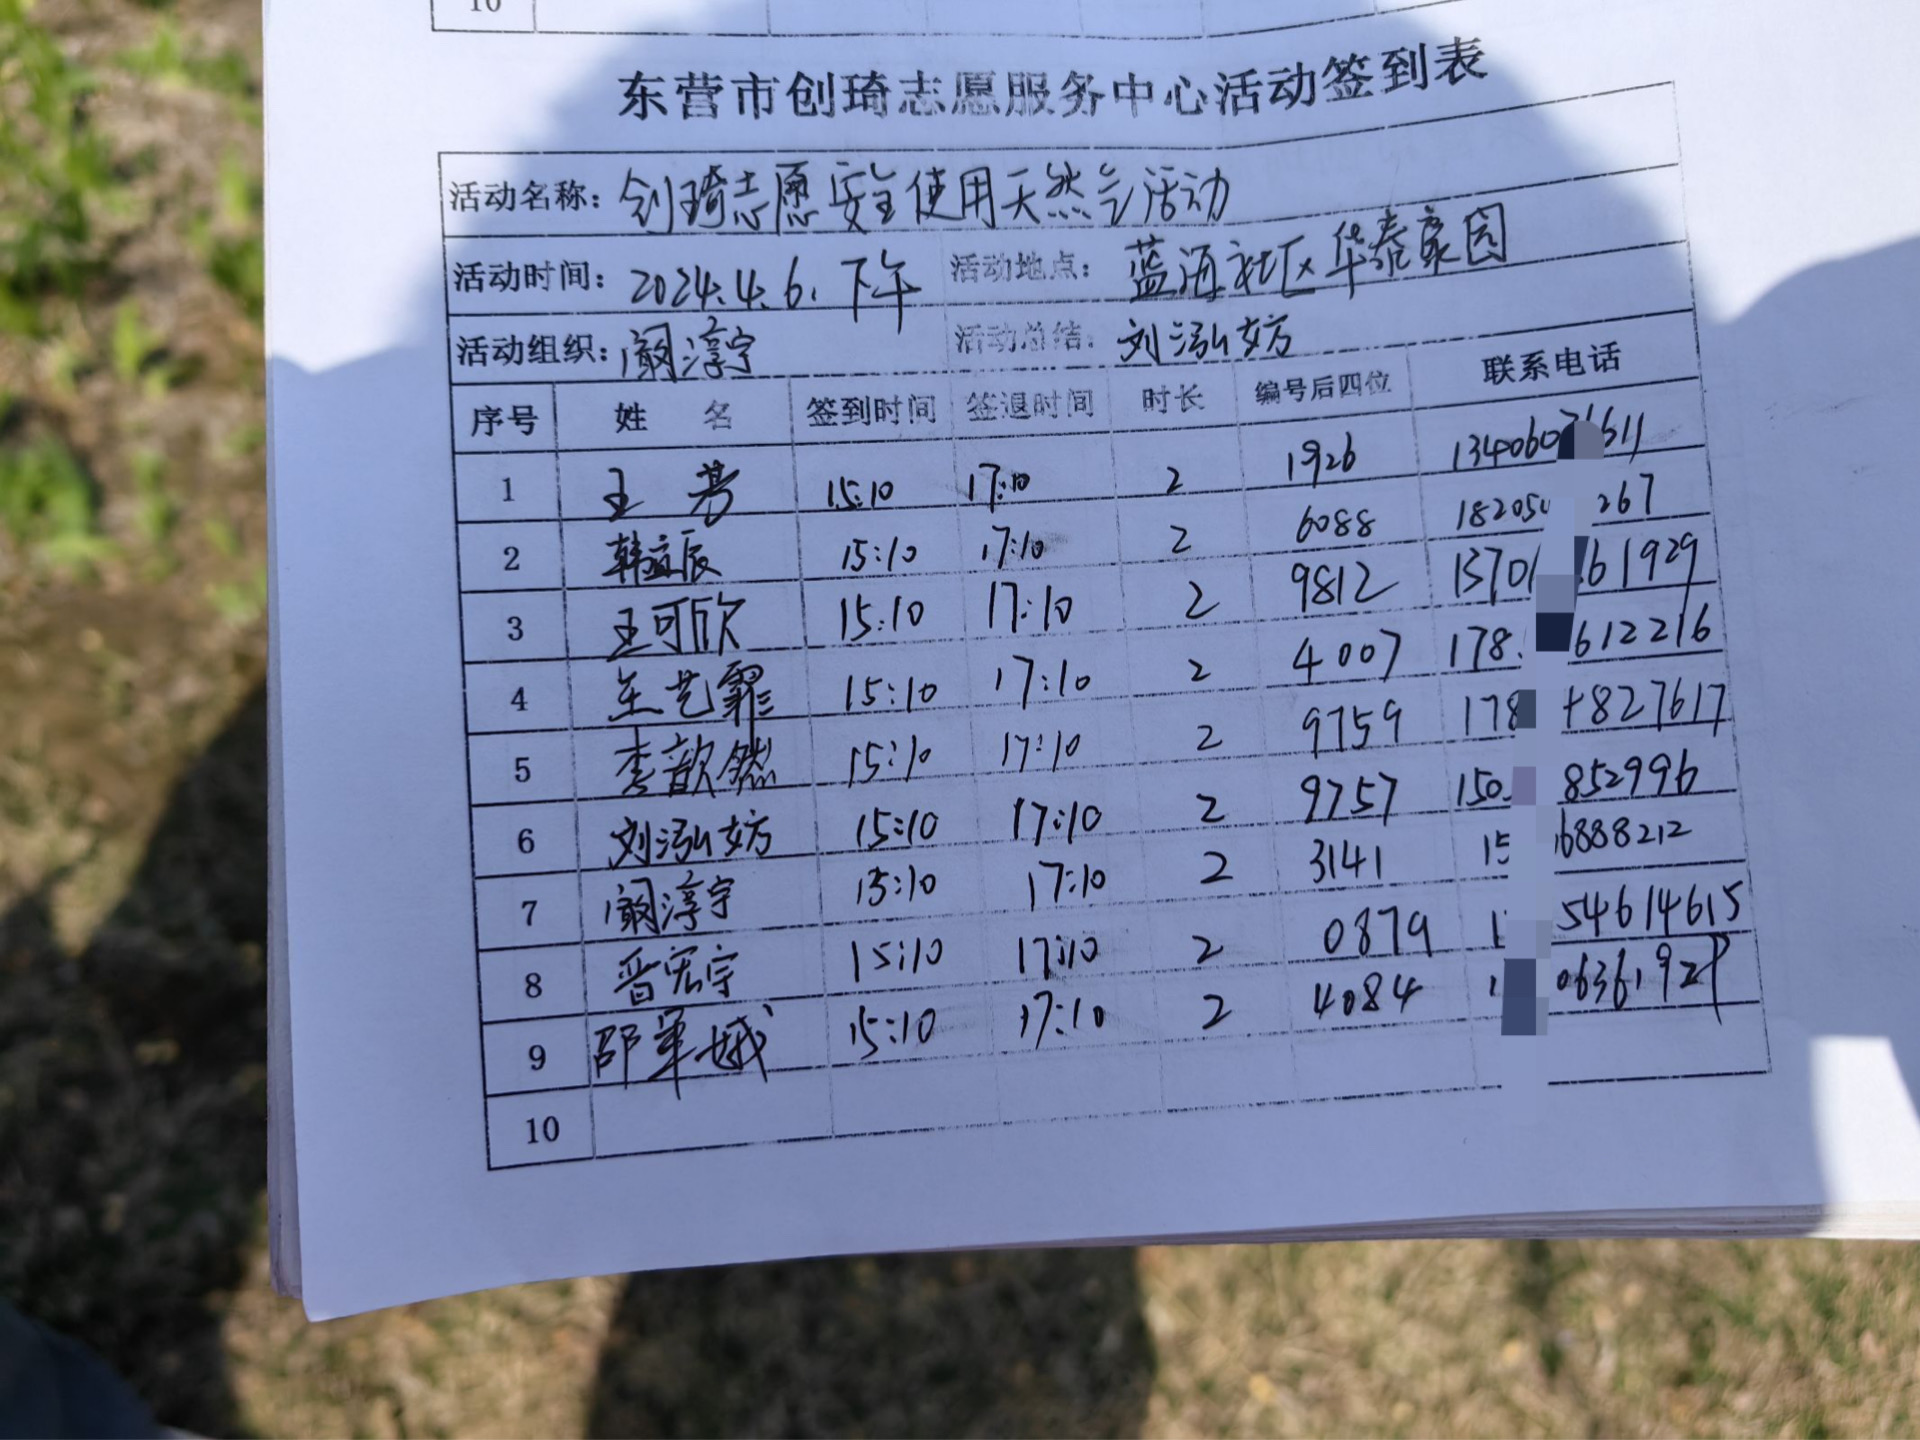 10
东营市创琦志愿服务中心活动签到表
活动名称：创琦志愿安全使用天然气活动
活动时间：2024.4.6.下午 活动地点：蓝海社区华泰家园
活动组织：阚淳宇 活动总结：刘泓妨
序号 姓名 签到时间 签退时间 时长 编号后四位 联系电话
1 王芳 15:10 17:10 2 1926 134060 611
2 韩立辰 15:10 17:10 2 6088 18205 267
3 王可欣 15:10 17:10 2 9812 1370 61929
4 王艺霏 15:10 17:10 2 4007 178 612216
5 李歆然 15:10 17:10 2 9759 178 827617
6 刘泓妨 15:10 17:10 2 9757 150 852996
7 阚淳宇 15:10 17:10 2 3141 15 6888212
8 晋宏宇 15:10 17:10 2 0879 1 54614615
9 邵军娥 15:10 17:10 2 4084 1 0636192
10